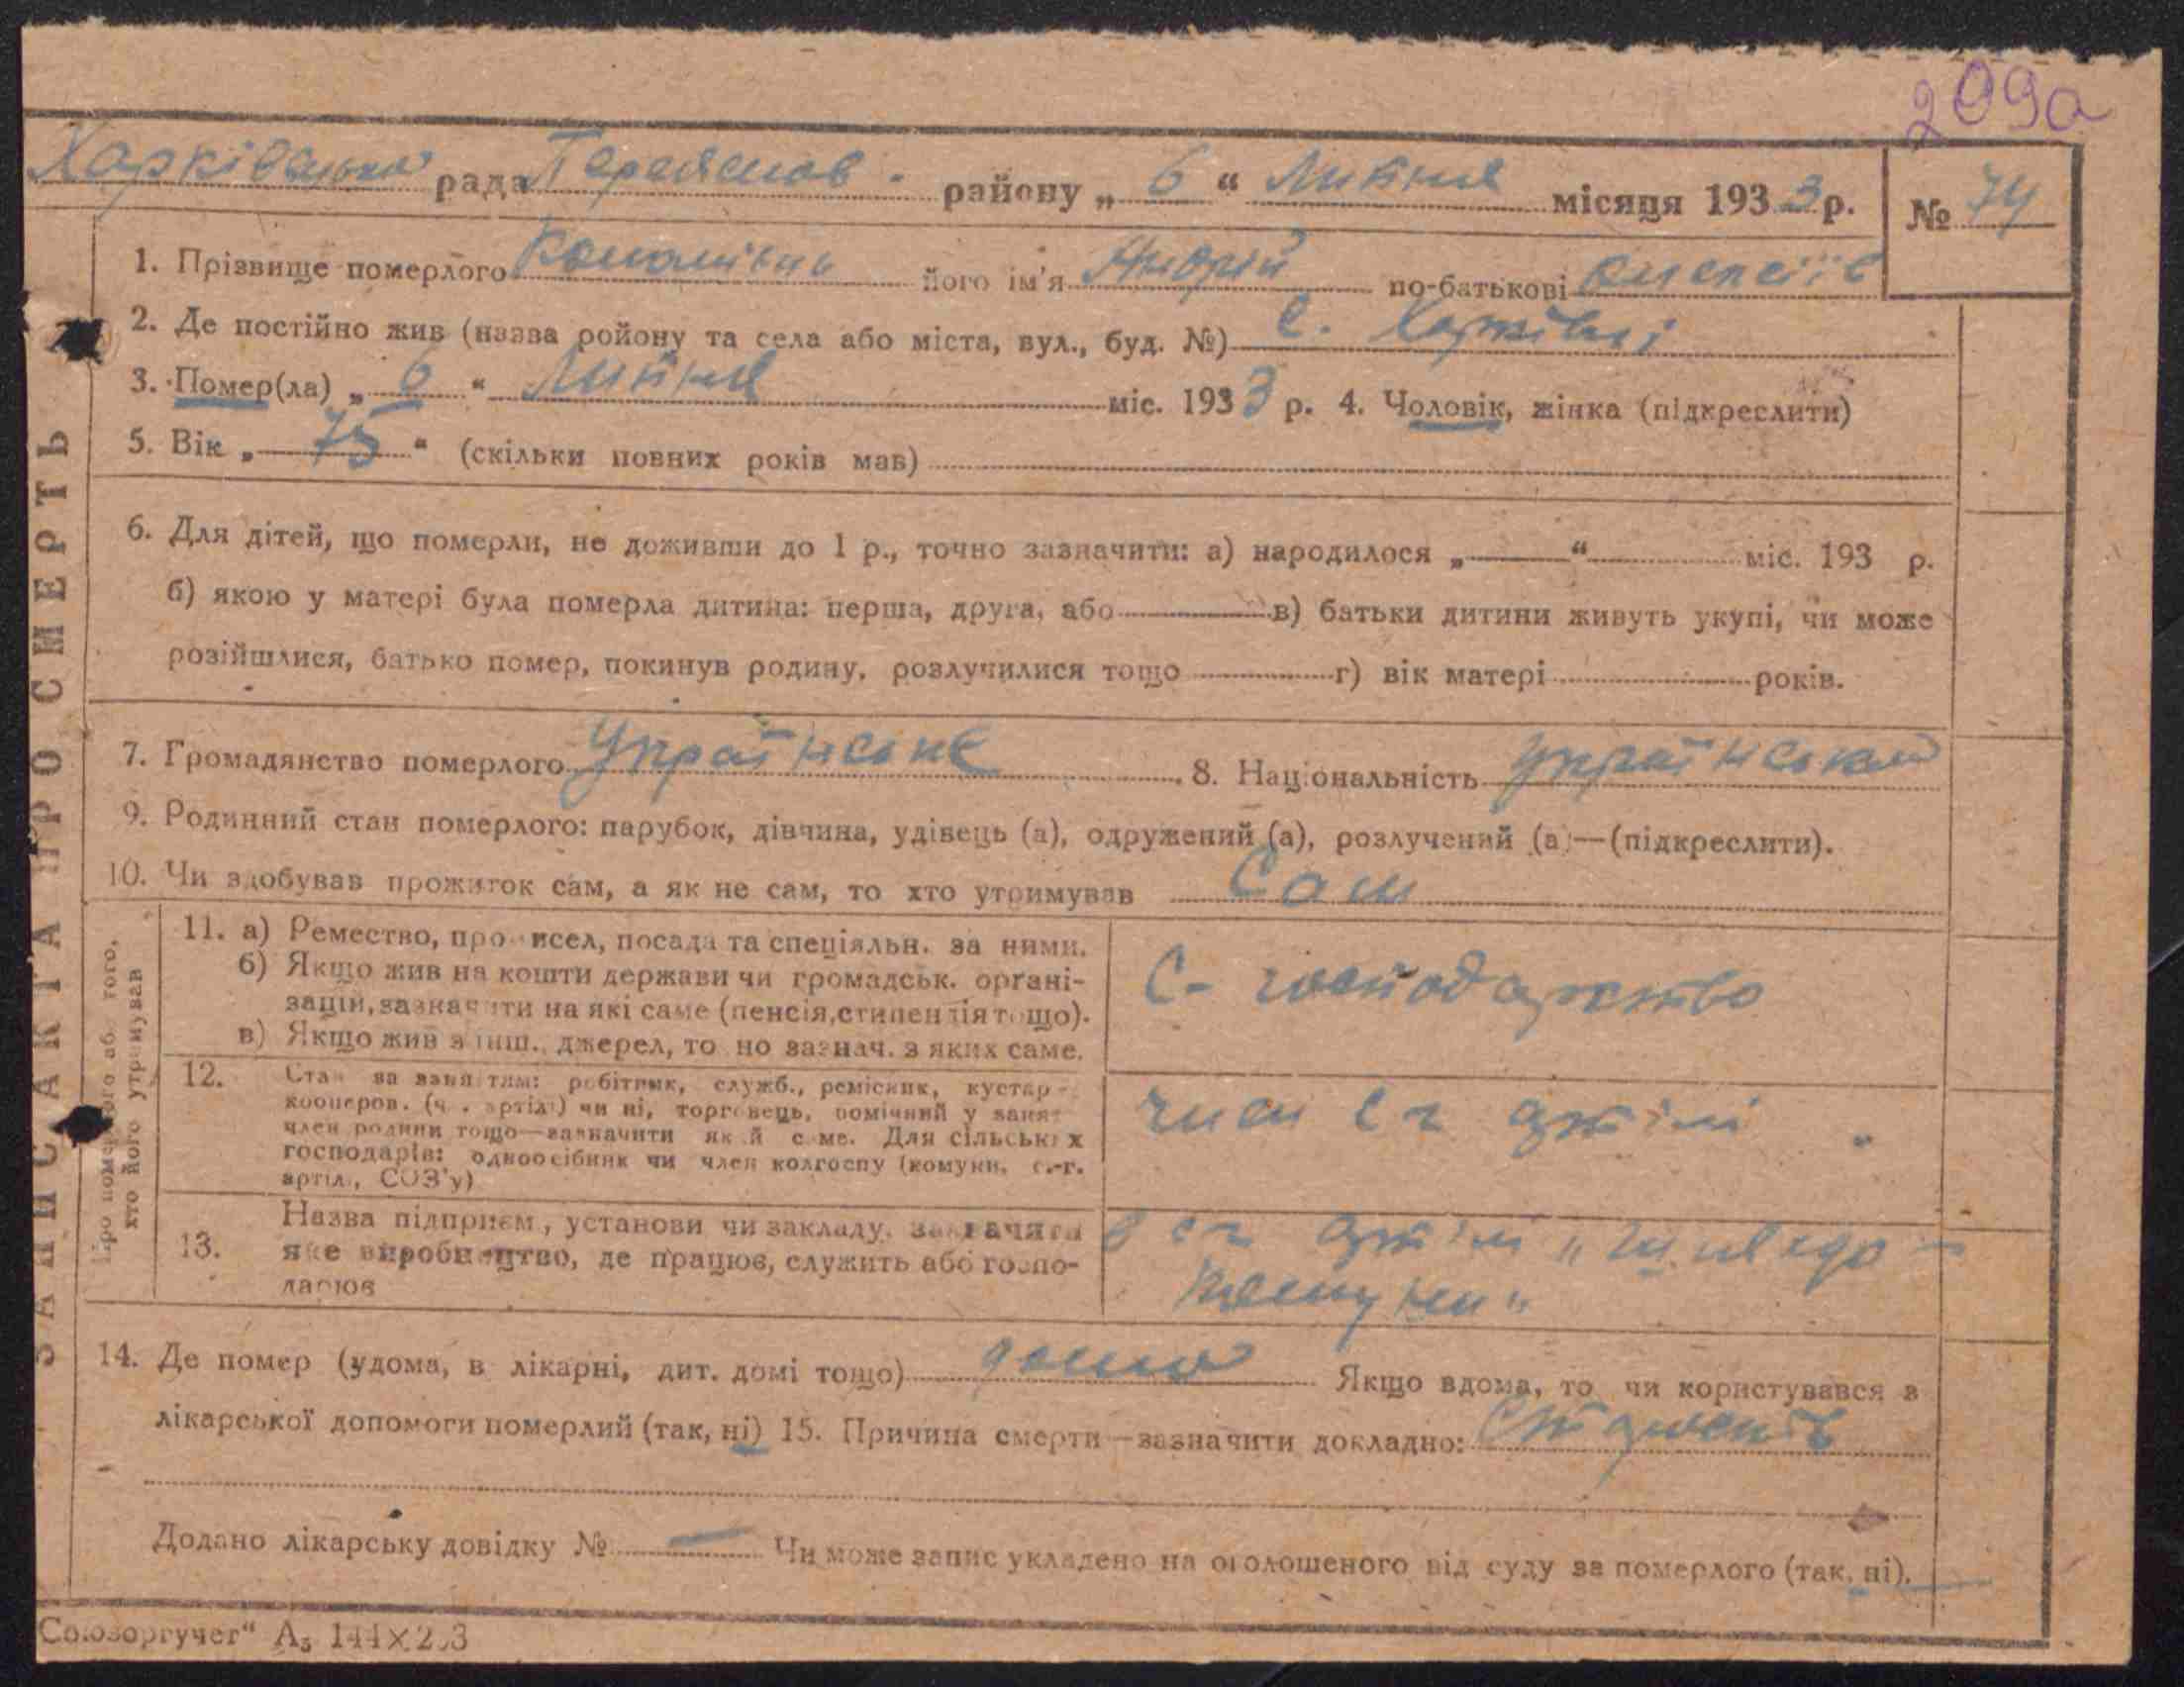 209а
Харківська рада Переяслов. району „6“ Липня місяця 1933 р. № 74
1. Прізвище померлого його ім'я Андрій по-батькові
2. Де постійно жив (назва ройону та села або міста, вул., буд. №) с. Харківці
3. Помер(ла) „6“ Липня міс. 1933 р. 4. Чоловік, жінка (підкреслити)
5. Вік „75“ (скільки повних років мав)
6. Для дітей, що померли, не доживши до 1 р., точно зазначити: а) народилося „ “ міс. 193 р.
б) якою у матері була померла дитина: перша, друга, або в) батьки дитини живуть укупі, чи може
розійшлися, батько помер, покинув родину, розлучилися тощо г) вік матері років.
7. Громадянство померлого Українське 8. Національність Український
9. Родинний стан померлого: парубок, дівчина, удівець (а), одружений (а), розлучений (а)—(підкреслити).
10. Чи здобував прожиток сам, а як не сам, то хто утримував Сам
Про померлого аб. того,
хто його утримував
11. а) Ремество, промисел, посада та спеціяльн. за ними.
б) Якщо жив на кошти держави чи громадськ. орґані-
зацій, зазначити на які саме (пенсія, стипендія тощо).
в) Якщо жив з інш. джерел, то но зазнач. з яких саме.
С- господарство
12. Стан за занятям: робітник, служб., ремісник, кустар-
кооперов. (ч. артілі) чи ні, торговець, помічний у занят
член родини тощо—зазначити який саме. Для сільських
господарів: одноосібник чи член колгоспу (комуни, с.-г.
артіл., СОЗ'у)
член с г артілі
13. Назва підприєм., установи чи закладу, зазначити
яке виробництво, де працює, служить або госпо-
дарює
в с г артілі „Ш.
комуни“
14. Де помер (удома, в лікарні, дит. домі тощо) дома Якщо вдома, то чи користувався з
лікарської допомоги померлий (так, ні) 15. Причина смерти—зазначити докладно: Старість
Додано лікарську довідку № — Чи може запис укладено на оголошеного від суду за померлого (так, ні).
Союзоргучет“ А₅ 144×203
ЗАПИС АКТА ПРО СМЕРТЬ